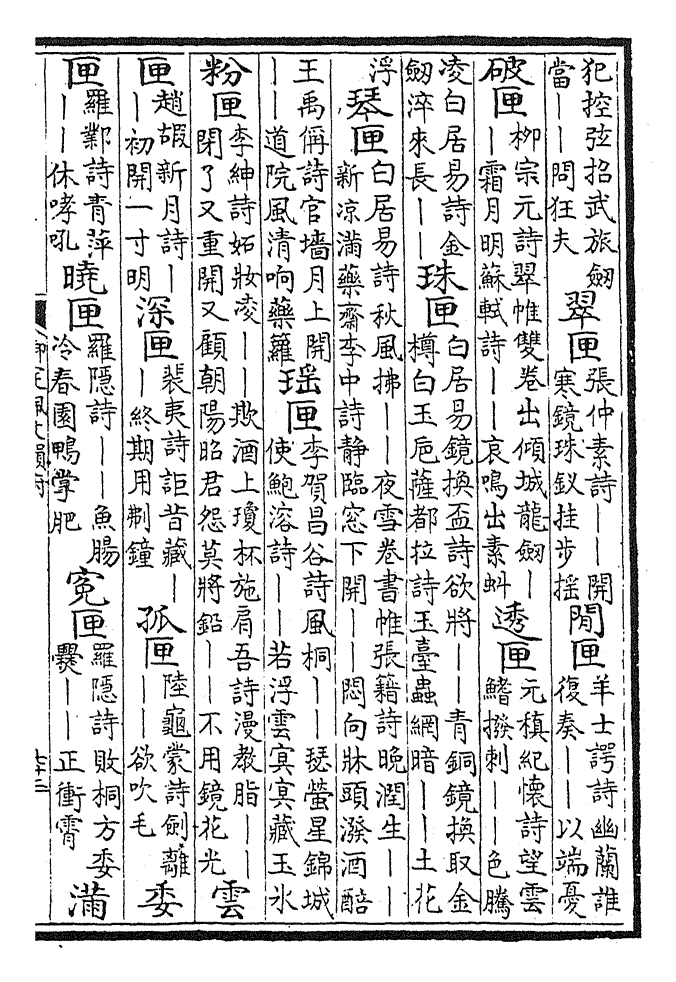 犯控弦招武旅劒
當——問狂夫
翠匣
張仲素詩——開
寒鏡珠釵挂步搖
閒匣
羊士諤詩幽蘭誰
復奏——以端憂
破匣
柳宗元詩翠帷雙卷出傾城龍劒—
—霜月明蘇軾詩——哀鳴出素虯
透匣
元稹紀懷詩望雲
鰭撥刺——色騰
凌白居易詩金
劒淬來長——
珠匣
白居易鏡換盃詩欲將——青銅鏡換取金
樽白玉巵薩都拉詩玉臺蟲網暗——土花
浮
琴匣
白居易詩秋風拂——夜雪卷書帷張籍詩晚潤生——
新凉滿藥齋李中詩靜臨窓下開——悶向牀頭潑酒醅
王禹偁詩官墻月上開
—道院風清响藥籮
瑶匣
李賀昌谷詩風桐——瑟螢星錦城
使鮑溶詩——若浮雲㝠㝠藏玉氷
粉匣
李紳詩妬妝凌——欺酒上瓊杯施肩吾詩漫教脂——
閉了又重開又顧朝陽昭君怨莫將鉛——不用鏡花光
雲
匣
趙嘏新月詩—
—初開一寸明
深匣
裴夷詩詎昔藏—
—終期用刜鐘
孤匣
陸龜蒙詩劍離
——欲吹毛
委
匣
羅鄴詩青萍
——休哮吼
曉匣
羅隱詩——魚腸
冷春園鴨掌肥
寃匣
羅隱詩敗桐方委
爨——正衝霄
滿